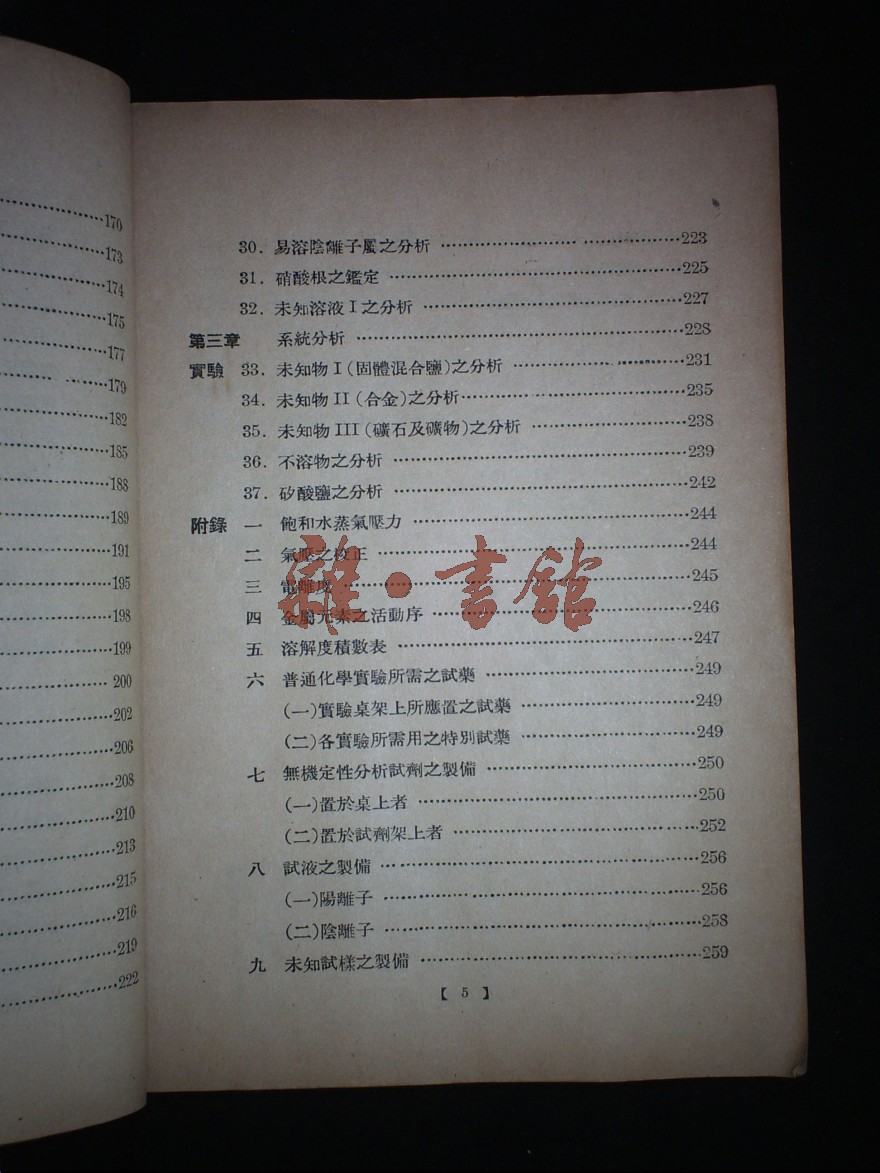 170
173
174
175
177
179
182
185
188
189
191
195
198
199
200
202
206
208
210
213
215
216
219
222
30. 易溶陰離子屬之分析 223
31. 硝酸根之鑑定 225
32. 未知溶液 I 之分析 227
第三章 系統分析 228
實驗 33. 未知物 I (固體混合鹽)之分析 231
34. 未知物 II (合金)之分析 235
35. 未知物 III (礦石及礦物)之分析 238
36. 不溶物之分析 239
37. 矽酸鹽之分析 242
附錄 一 飽和水蒸氣壓力 244
二 氣壓之校正 244
三 電離度 245
四 金屬元素之活動序 246
五 溶解度積數表 247
六 普通化學實驗所需之試藥 249
(一)實驗桌架上所應置之試藥 249
(二)各實驗所需用之特別試藥 249
七 無機定性分析試劑之製備 250
(一)置於桌上者 250
(二)置於試劑架上者 252
八 試液之製備 256
(一)陽離子 256
(二)陰離子 258
九 未知試樣之製備 259
【 5 】
雜·書館